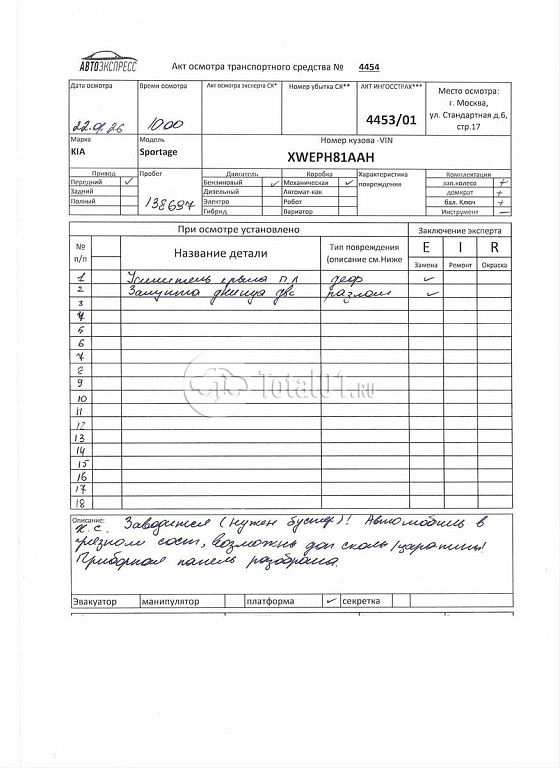 АВТОЭКСПРЕСС
Акт осмотра транспортного средства № 4454
Дата осмотра Время осмотра Акт осмотра эксперта СК* Номер убытка СК** АКТ ИНГОССТРАХ*** Место осмотра:
г. Москва,
ул. Стандартная д.6,
стр.17
1000 4453/01
Марка Модель Номер кузова -VIN
KIA Sportage XWEPH81AAH
Привод Пробег Двигатель Коробка Характеристика повреждения Комплектация
Передний ✓ Бензиновый ✓ Механическая ✓ зап.колесо +
Задний Дизельный Автомат-кая домкрат +
Полный 138697 Электро Робот бал. Ключ +
Гибрид Вариатор Инструмент —
При осмотре установлено Заключение эксперта
№ п/п Название детали Тип повреждения (описание см.Ниже E I R
Замена Ремонт Окраска
1 Усилитель крыла п.л деф ✓
2 Защита днища двс разлом ✓
3
4
5
6
7
8
9
10
11
12
13
14
15
16
17
18
Total01.RU
Описание:
Н.С. Заводится (нужен бустер)! Автомобиль в
грязном сост, возможны доп сколы/царапины!
Приборная панель разобрана.
Эвакуатор манипулятор платформа ✓ секретка